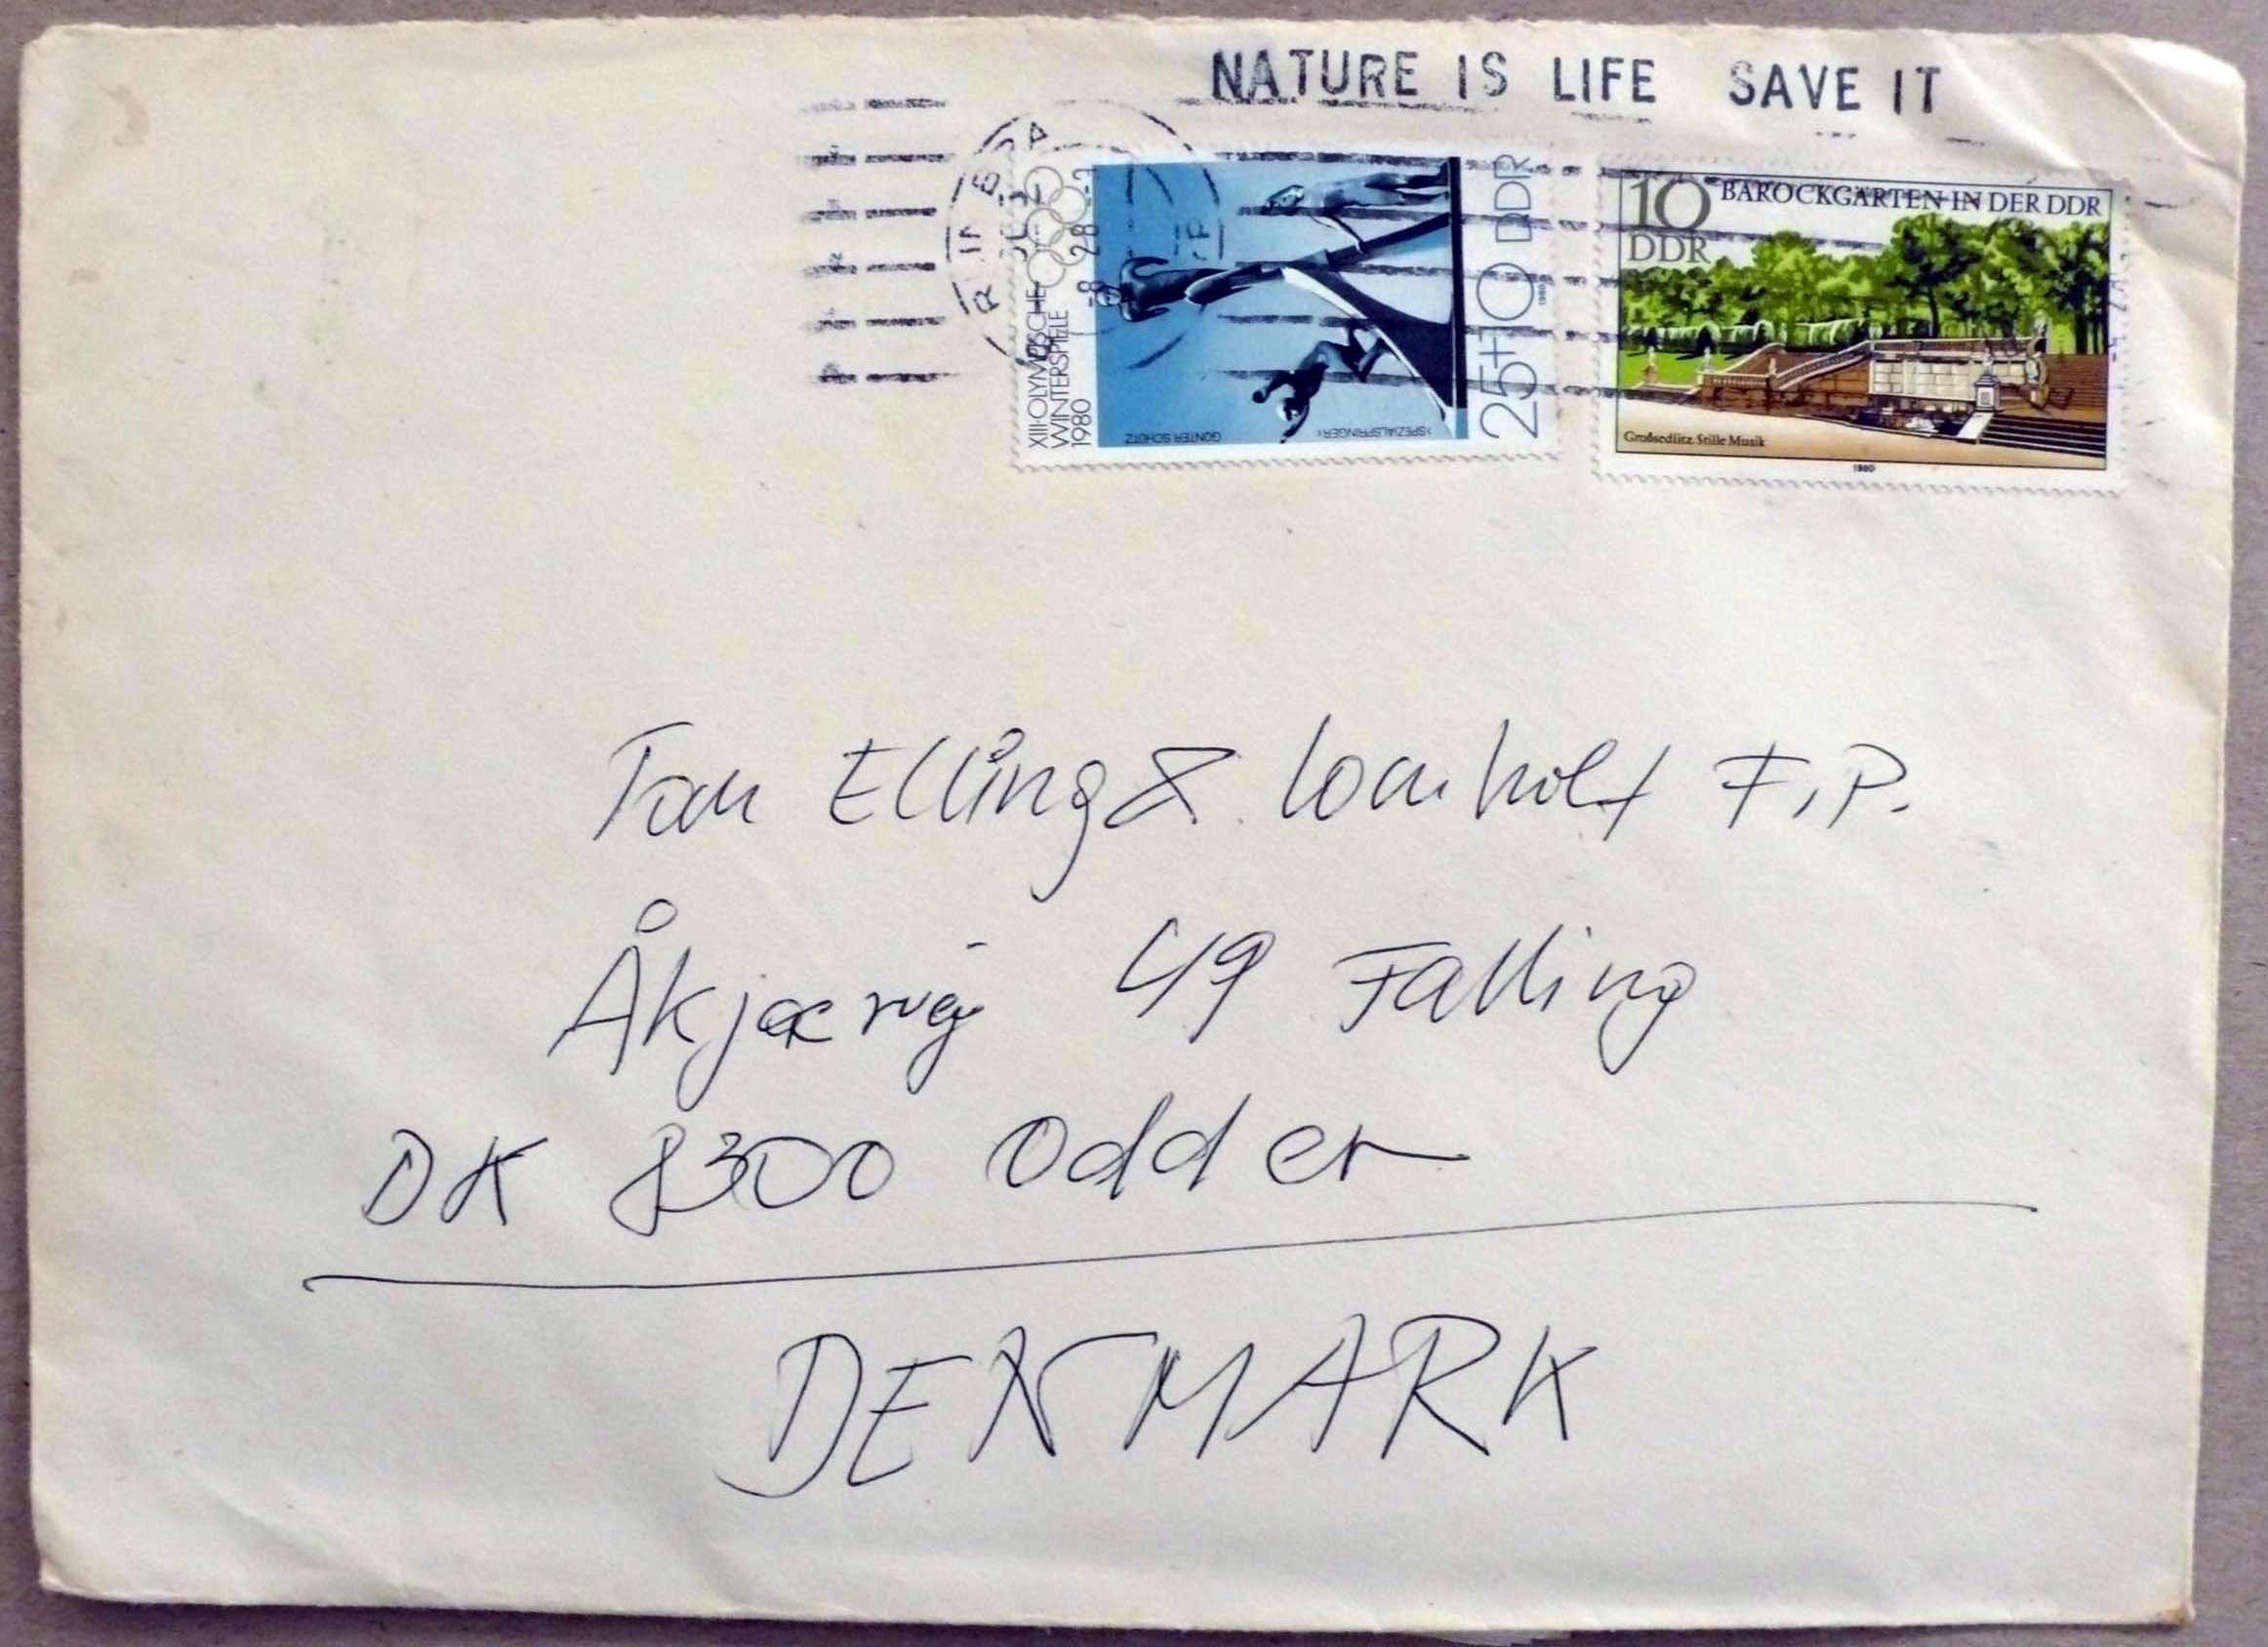 NATURE IS LIFE SAVE IT
XIII. OLYMPISCHE
WINTERSPIELE
1980
GÜNTER SCHÜTZ
»SPEZIALSPRINGER«
25+10 DDR
1980
10
DDR
BAROCKGÄRTEN IN DER DDR
Großsedlitz. Stille Musik
1980
Tom Elling & Lomholt F.P.
Åkjærvej 49 Falling
DK 8300 Odder
DENMARK